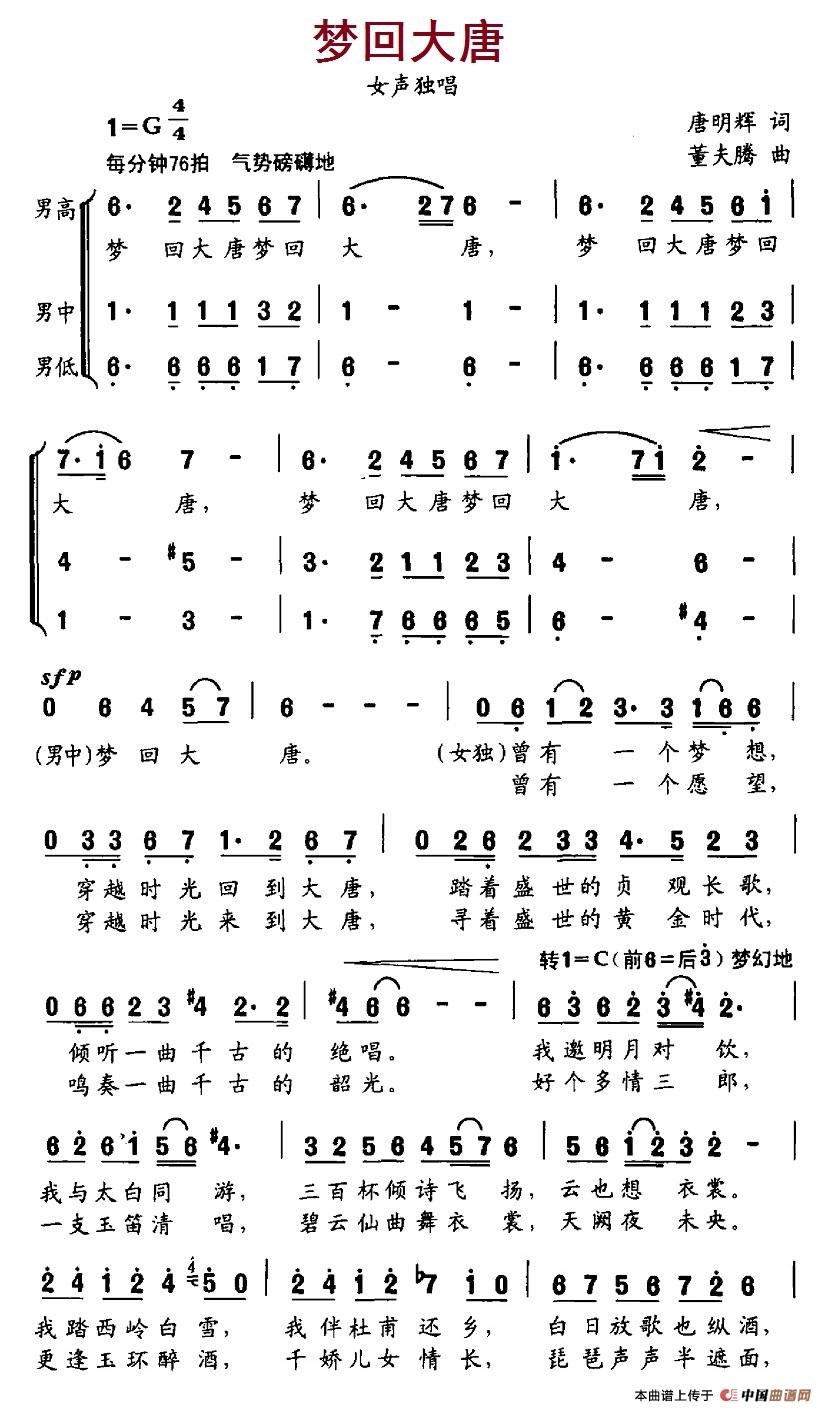 梦回大唐
女声独唱
1=G 4/4
唐明辉 词
每分钟76拍 气势磅礴地
董夫腾 曲
男高 6· 2 4 5 6 7 | 6· 2 7 6 - | 6· 2 4 5 6 i |
梦 回大唐梦回 大 唐, 梦 回大唐梦回
男中 1· 1 1 1 3 2 | 1 - 1 - | 1· 1 1 1 2 3 |
男低 6· 6 6 6 1 7 | 6 - 6 - | 6· 6 6 6 1 7 |
7· i 6 7 - | 6· 2 4 5 6 7 | i· 7 i 2 - |
大 唐, 梦 回大唐梦回 大 唐,
4 - #5 - | 3· 2 1 1 2 3 | 4 - 6 - |
1 - 3 - | 1· 7 6 6 6 5 | 6 - #4 - |
sfp
0 6 4 5 7 | 6 - - - | 0 6 1 2 3· 3 1 6 6 |
(男中)梦 回 大 唐。 (女独)曾有 一 个 梦 想,
曾有 一 个 愿 望,
0 3 3 6 7 1· 2 6 7 | 0 2 6 2 3 3 4· 5 2 3 |
穿越时光回 到大唐, 踏着盛世的贞 观长歌,
穿越时光来 到大唐, 寻着盛世的黄 金时代,
转1=C(前6=后3)梦幻地
0 6 6 2 3 #4 2· 2 | #4 6 6 - - | 6 3 6 2 3 #4 2·
倾听一曲千古的 绝唱。 我邀明月对 饮,
鸣奏一曲千古的 韶光。 好个多情三 郎,
6 2 6 i 5 6 #4· | 3 2 5 6 4 5 7 6 | 5 6 6 i 2 3 2 - |
我与太白同 游, 三百杯倾诗飞 扬, 云也想 衣裳。
一支玉笛清 唱, 碧云仙曲舞衣 裳, 天阙夜 未央。
2 4 i 2 4 5 0 | 2 4 i 2 b7 i 0 | 6 7 5 6 7 2 6 |
我踏西岭白雪, 我伴杜甫还乡, 白日放歌也纵酒,
更逢玉环醉酒, 千娇儿女情长, 琵琶声声半遮面,
本曲谱上传于 中国曲谱网